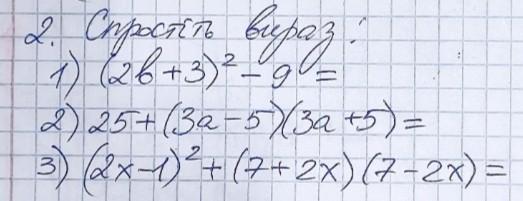 2. Спростіть вираз:
1) (2b+3)² - 9 =
2) 25+(3a-5)(3a+5)=
3) (2x-1)²+(7+2x)(7-2x)=